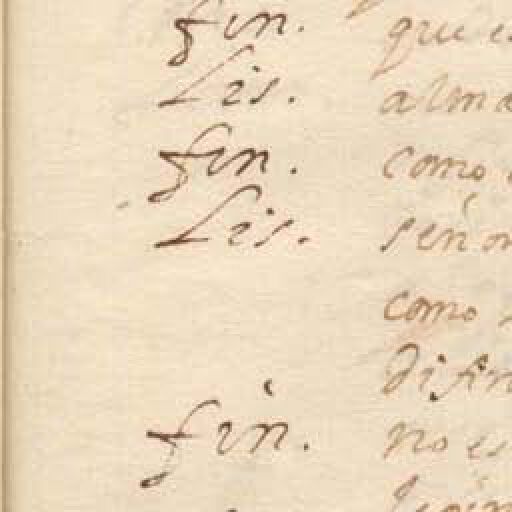 fin. que
Lis. alma
fin. como
Lis. señor
como
difin
fin. no es